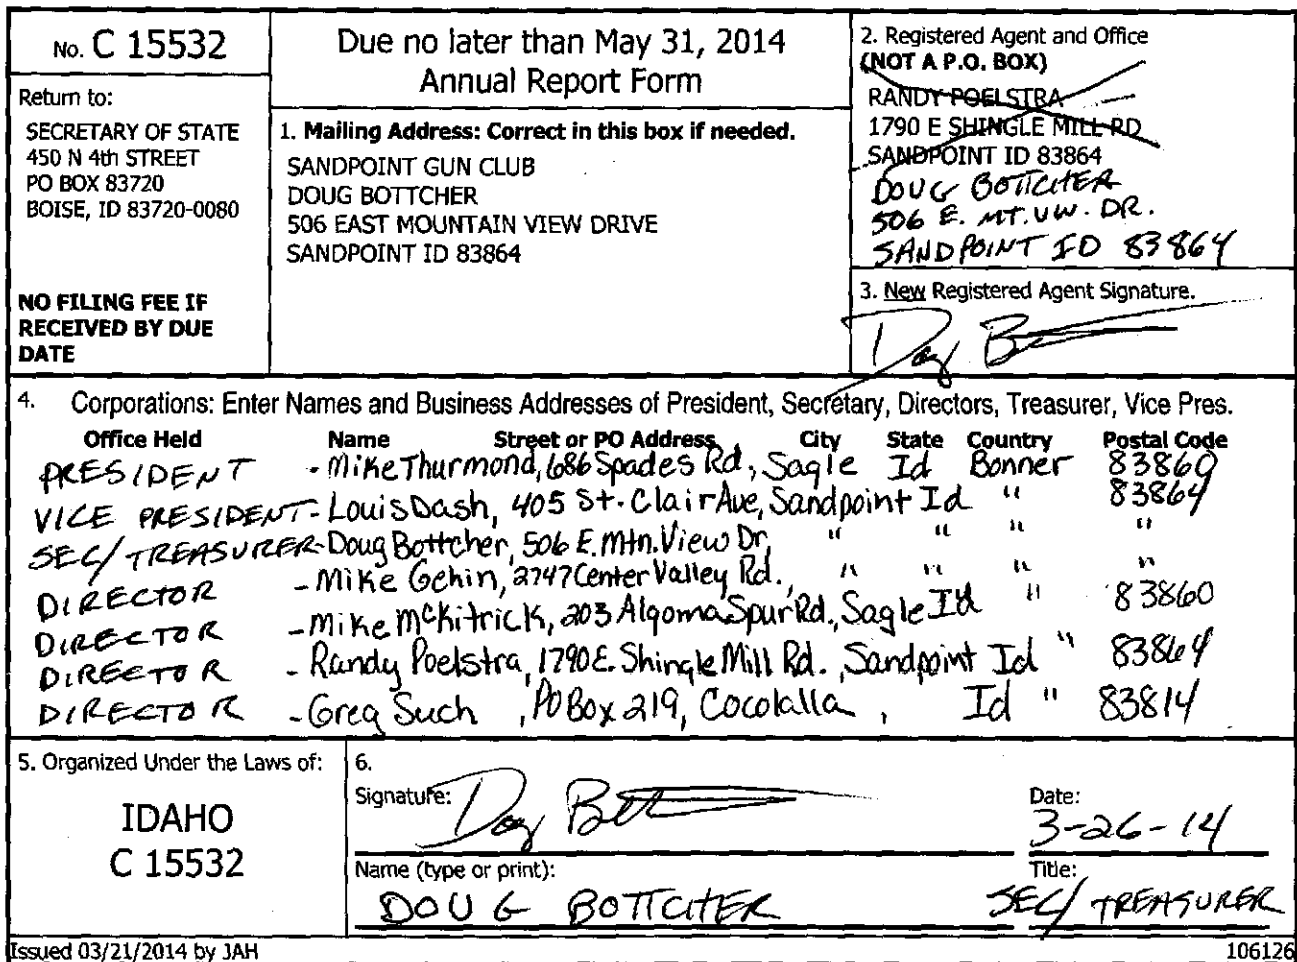 No. C 15532
Return to:
SECRETARY OF STATE
450 N 4th STREET
PO BOX 83720
BOISE, ID 83720-0080
NO FILING FEE IF
RECEIVED BY DUE
DATE
Due no later than May 31, 2014
Annual Report Form
1. Mailing Address: Correct in this box if needed.
SANDPOINT GUN CLUB
DOUG BOTTCHER
506 EAST MOUNTAIN VIEW DRIVE
SANDPOINT ID 83864
2. Registered Agent and Office
(NOT A P.O. BOX)
RANDY POELSTRA
1790 E SHINGLE MILL RD
SANDPOINT ID 83864
DOUG BOTTCHER
506 E. MT. VW. DR.
SANDPOINT ID 83864
3. New Registered Agent Signature.
Doug Bott
4. Corporations: Enter Names and Business Addresses of President, Secretary, Directors, Treasurer, Vice Pres.
Office Held Name Street or PO Address City State Country Postal Code
PRESIDENT - Mike Thurmond, 686 Spades Rd., Sagle Id Bonner 83860
VICE PRESIDENT - Louis Dash, 405 St. Clair Ave, Sandpoint Id " 83864
SEC/TREASURER - Doug Bottcher, 506 E. Mtn. View Dr, " " " "
DIRECTOR - Mike Gehin, 2747 Center Valley Rd., " " " "
DIRECTOR - Mike McKitrick, 203 Algoma Spur Rd., Sagle Id " 83860
DIRECTOR - Randy Poelstra, 1790 E. Shingle Mill Rd., Sandpoint Id " 83864
DIRECTOR - Greg Such, PO Box 219, Cocolalla, Id " 83814
5. Organized Under the Laws of:
IDAHO
C 15532
6.
Signature: Doug Bott
Date:
3-26-14
Name (type or print):
DOUG BOTTCHER
Title:
SEC/TREASURER
Issued 03/21/2014 by JAH
106126